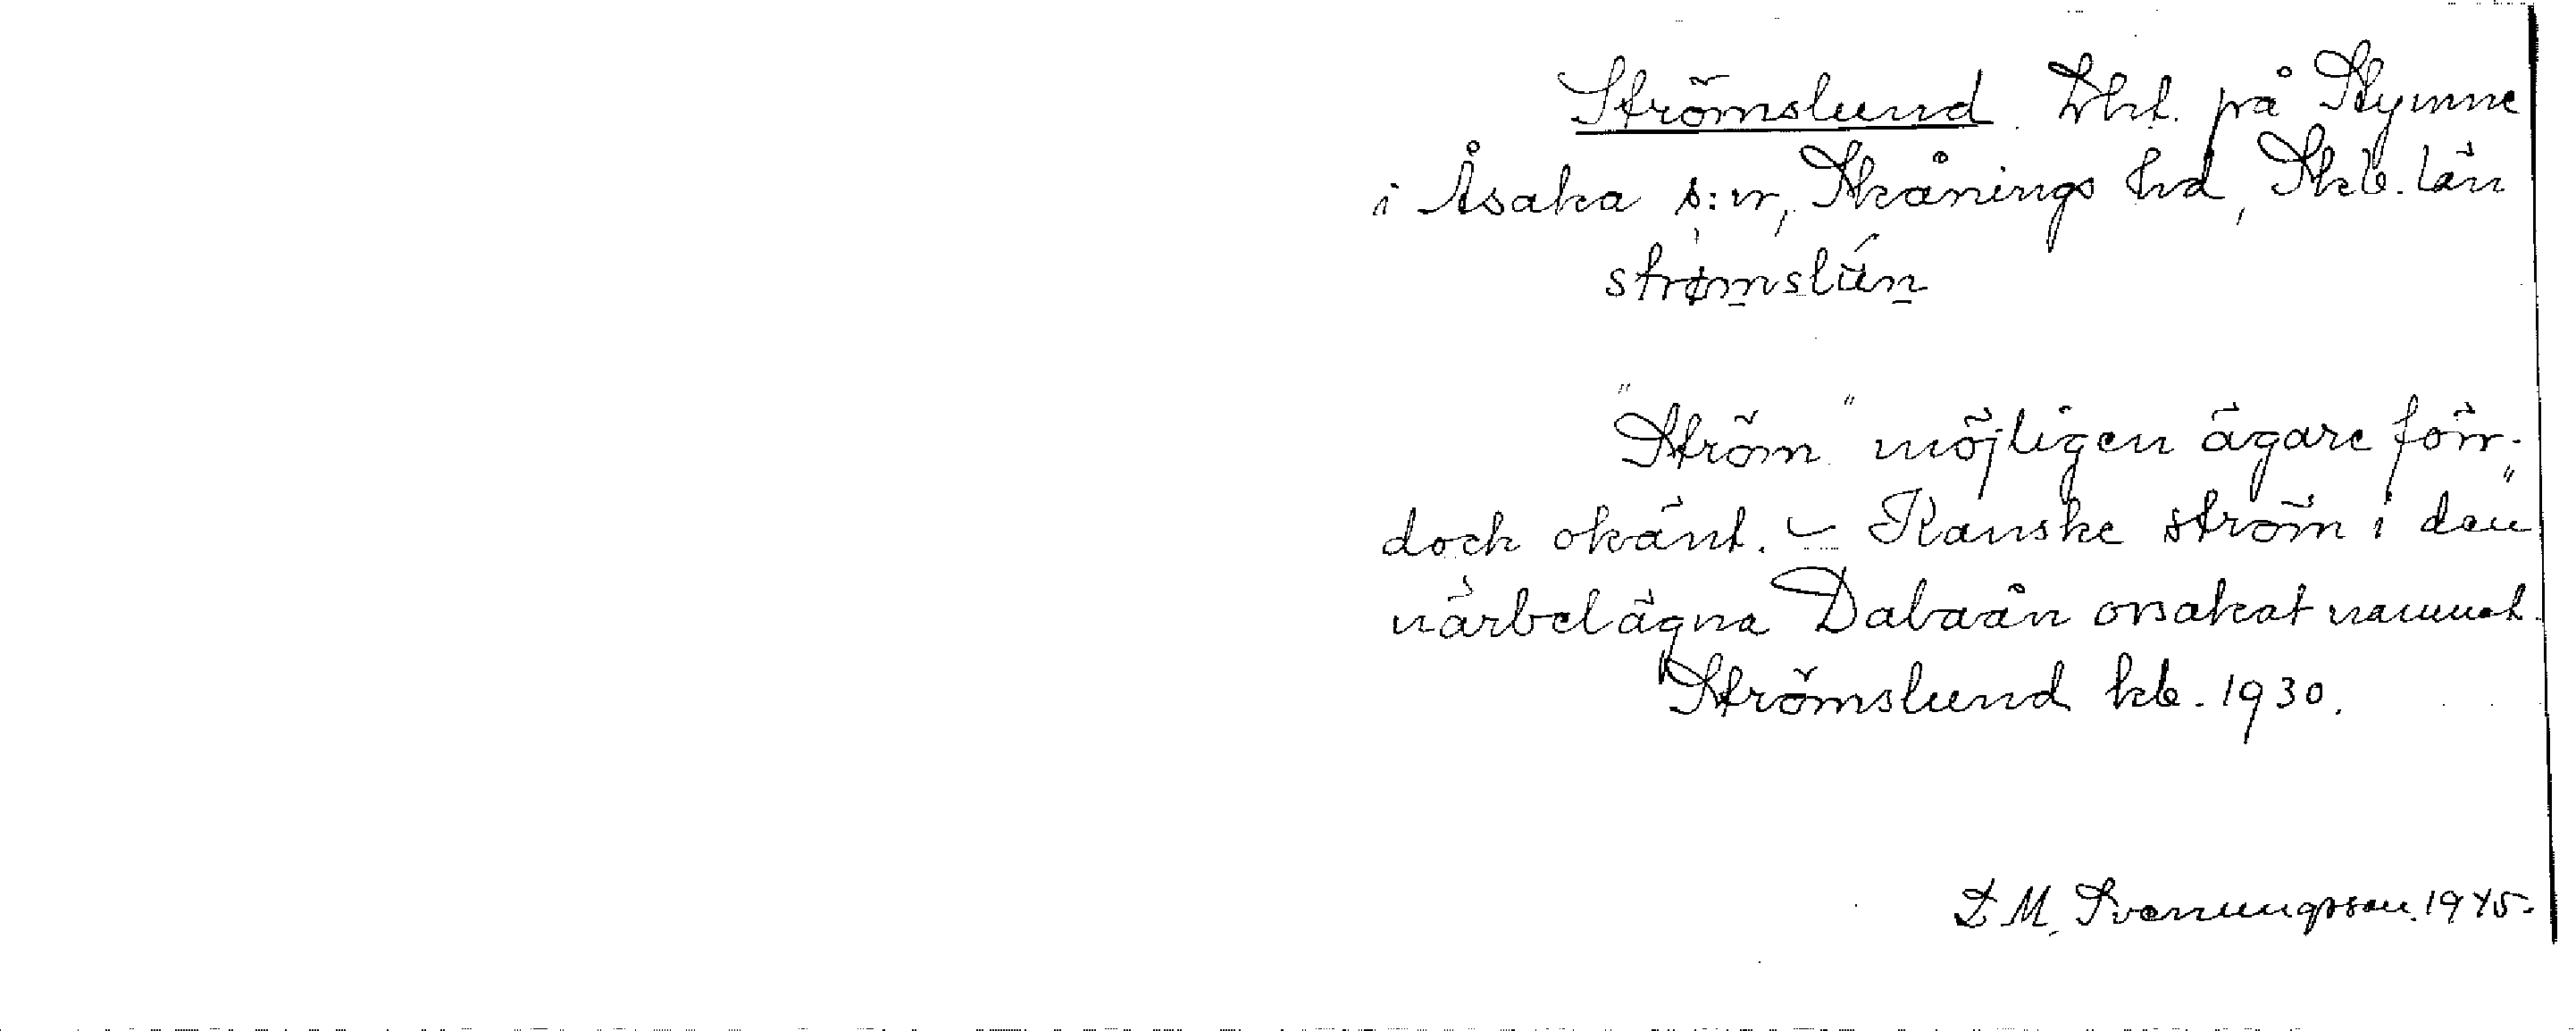 Strömslund. Lht. på Stymme
i Åsaka s:n, Skånings hd, Skb. län
strømslu̇́n
"Ström" möjligen ägare förr.
doch okänt. – Kanske ström i den"
närbelägna Dabaån orsakat namnet.
Strömslund kb. 1930.
L M. Svenungsson. 1945.